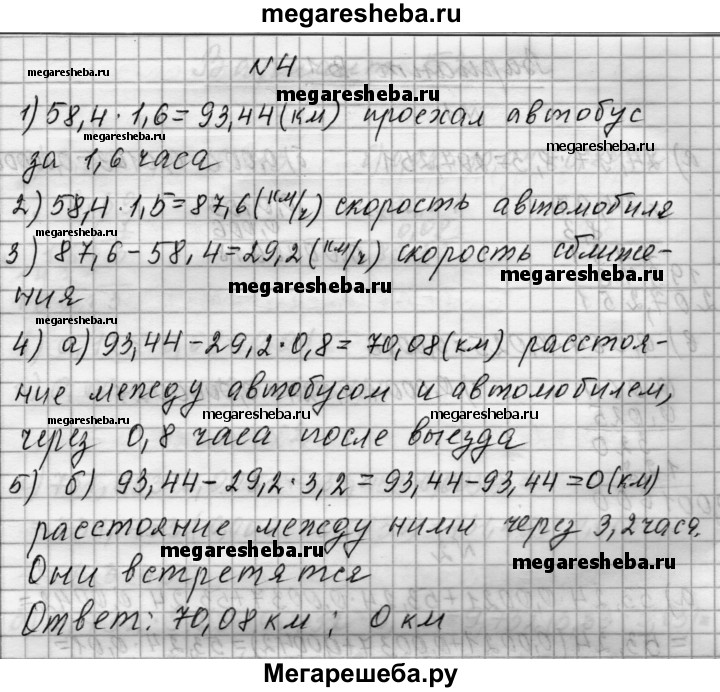 megaresheba.ru
N4
megaresheba.ru
megaresheba.ru
1) 58,4 · 1,6 = 93,44 (км) проехал автобус
megaresheba.ru
за 1,6 часа
megaresheba.ru
2) 58,4 · 1,5 = 87,6 (км/ч) скорость автомобиля
megaresheba.ru
3) 87,6 - 58,4 = 29,2 (км/ч) скорость сближе-
megaresheba.ru
megaresheba.ru
ния
megaresheba.ru
4) а) 93,44 - 29,2 · 0,8 = 70,08 (км) расстоя-
ние между автобусом и автомобилем,
megaresheba.ru megaresheba.ru megaresheba.ru
через 0,8 часа после выезда
5) б) 93,44 - 29,2 · 3,2 = 93,44 - 93,44 = 0 (км)
расстояние между ними через 3,2 часа.
megaresheba.ru
megaresheba.ru
Они встретятся
Ответ: 70,08 км ; 0 км
Мегарешеба.ру